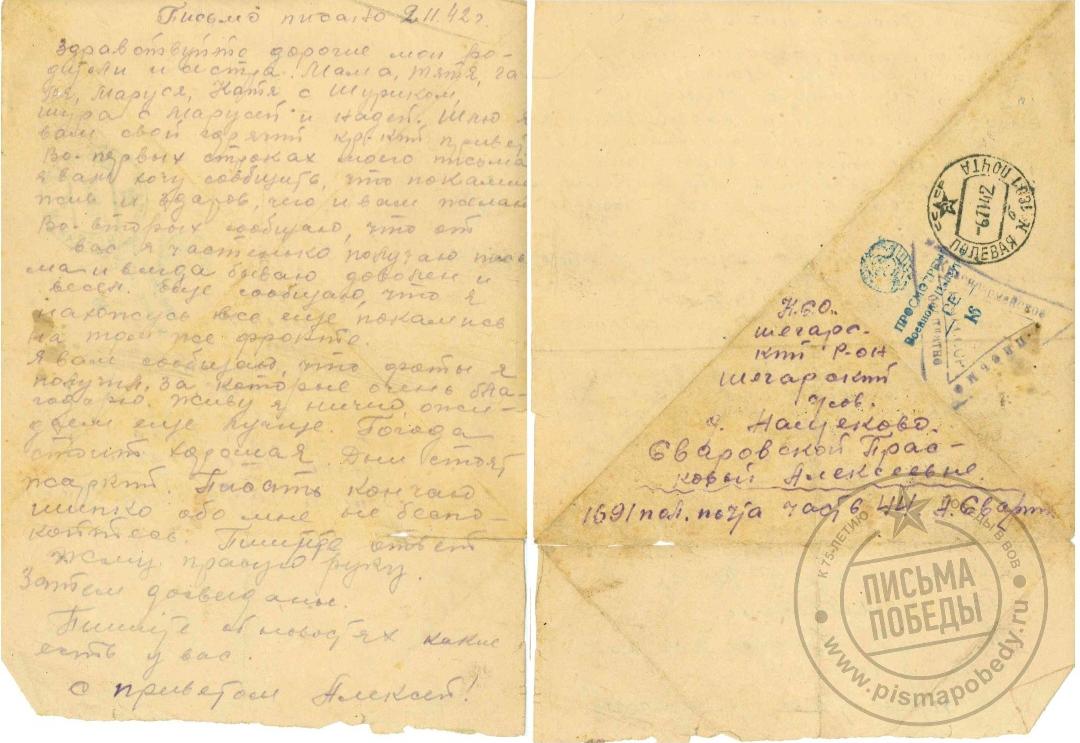 Письмо писано 2.11.42 г.
Здравствуйте дорогие мои ро-
дители и сестра! Мама, тятя, га-
ля, Маруся, Катя с Шуриком,
шура с Марусей и надей. Шлю я
вам свой горячий кр-кий привет
Во-первых строках моего письма
я вам хочу сообщить, что пока
жив и здаров, чего и вам желаю
Во-вторых сообщаю, что от
вас я частенько получаю пись
ма и всегда бываю доволен и
весел. Еще сообщаю, что я
нахожусь все еще покамись
на том же фронте.
Я вам сообщаю, что фоты я
получил, за которые очень бла-
годарю. Живу я ничего, ожи-
даем еще лучше. Погода
стоит хорошая. Дни стоят
жаркий. Писать кончаю
шипко обо мне не беспо-
койтесь. Пишите ответ
Жму правую руку.
Затем досвиданье.
Пишите о новостях какие
есть у вас.
С приветом Алексей!
Н.С.О.
шегарс-
кий р-он
Шегарский
д. Нащеково.
Сваровской Прас-
ковьи Алексеевне.
1691 пол. почта часть 44 А. Сварт
ПОЛЕВАЯ ПОЧТА
-6.11.42
ПРОСМОТРЕНО
Военной
К 75-ЛЕТИЮ ПОБЕДЫ В ВОВ
ПИСЬМА
ПОБЕДЫ
www.pismapobedy.ru